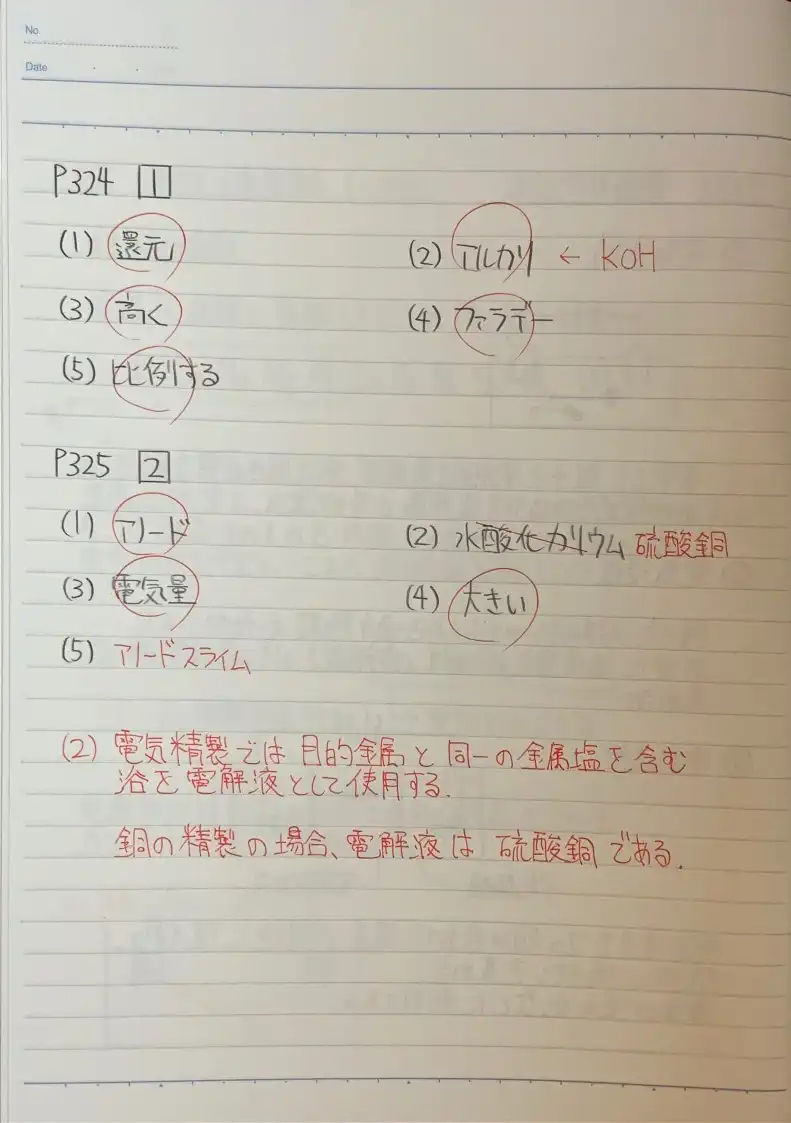 No.
Date
P324 1
(1) 還元 (2) アルカリ ← KOH
(3) 高く (4) ファラデー
(5) 比例する
P325 2
(1) アノード (2) 水酸化カリウム 硫酸銅
(3) 電気量 (4) 大きい
(5) アノードスライム
(2) 電気精製では 目的金属と同一の金属塩を含む
浴を電解液として使用する.
銅の精製の場合、電解液は 硫酸銅 である.